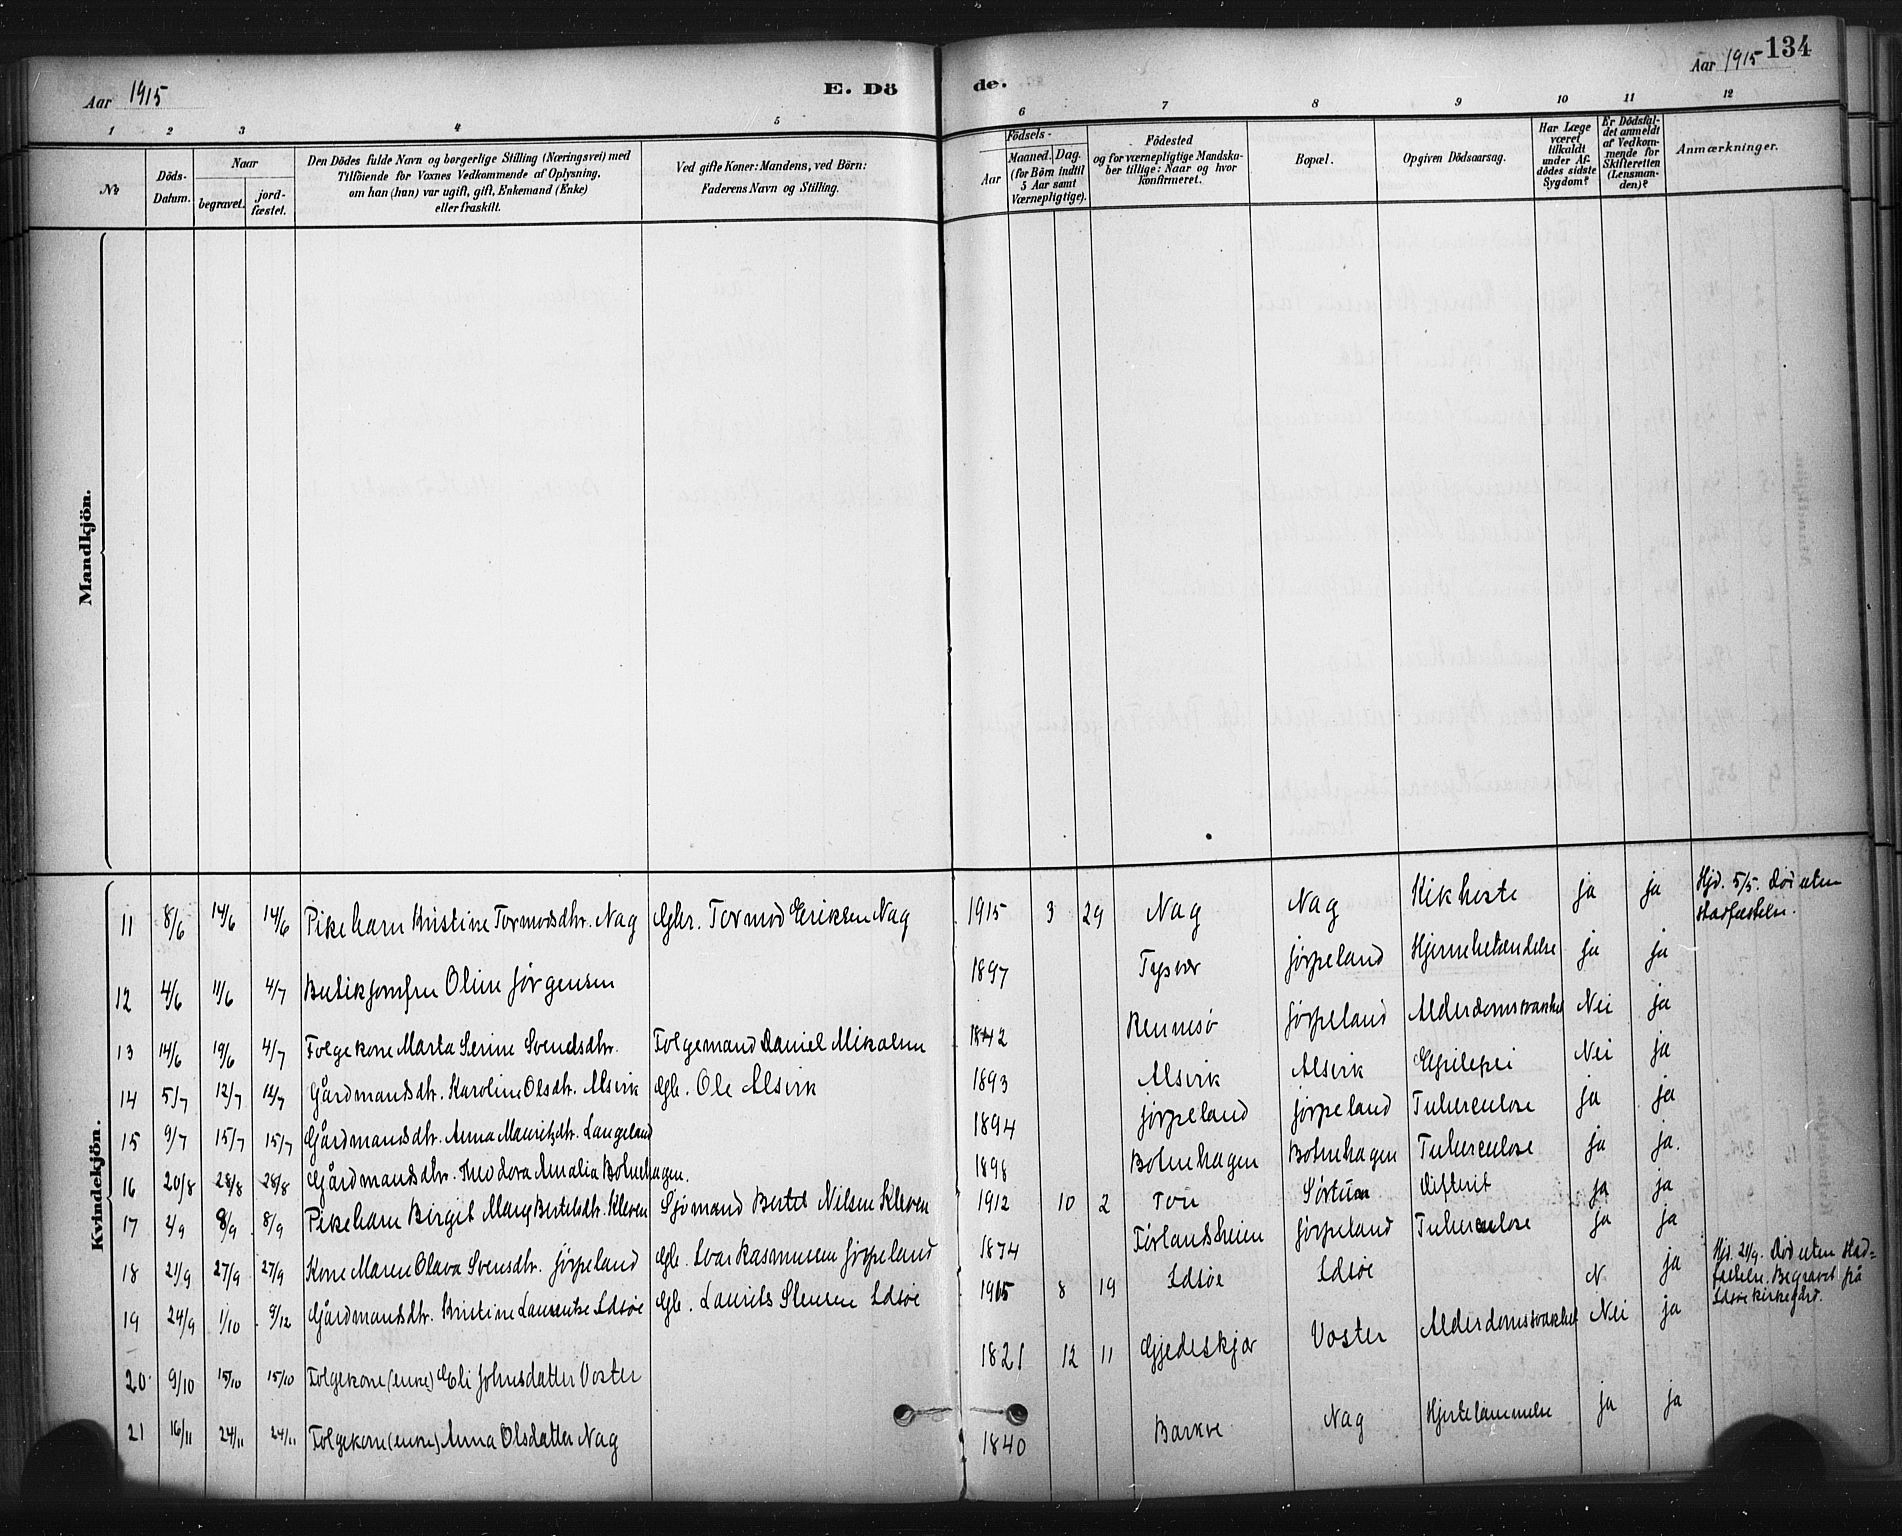 Aar 1915
E. Dö
de.
Aar 1915
134
1 2 3 4 5 6 7 8 9 10 11 12
№
Döds-
Datum.
Naar
begravet.
jord-
fæstet.
Den Dödes fulde Navn og borgerlige Stilling (Næringsvei) med
Tilföiende for Voxnes Vedkommende af Oplysning,
om han (hun) var ugift, gift, Enkemand (Enke)
eller fraskilt.
Ved gifte Koner: Mandens, ved Börn:
Faderens Navn og Stilling.
Födsels-
Aar
Maaned. Dag.
(for Börn indtil
5 Aar samt
Værnepligtige).
Födested
og for værnepligtige Mandska-
ber tillige: Naar og hvor
konfirmeret.
Bopæl.
Opgiven Dödsaarsag.
Har Læge
været
tilkaldt
under Af-
dödes sidste
Sygdom?
Er Dödsfal-
det anmeldt
af Vedkom-
mende for
Skifteretten
(Lensman-
den)?
Anmærkninger.
Mandkjön.
Kvindekjön.
11 8/6 14/6 14/6 Pikebarn Kristine Tormodsdtr. Nag Gbr. Tormod Eriksen Nag 1915 3 29 Nag Nag Kikhoste ja ja Hjd. 5/5. Död uten
stadfæstelse.
12 4/6 11/6 4/7 Butikjomfru Oline Jørgensen 1897 Tysvær Jørpeland Hjernebetændelse ja ja
13 14/6 19/6 4/7 Folgekone Marta Serine Svendsdtr. Folgemand Daniel Mikalsen 1842 Rennesø Jørpeland Alderdomssvakhet Nei ja
14 5/7 12/7 12/7 Gårdmandsdtr. Karoline Olsdtr. Alsvik Gb. Ole Alsvik 1893 Alsvik Alsvik Epilepsi Nei ja
15 9/7 15/7 15/7 Gårdmandsdtr. Anna Mauritzdtr. Langeland 1894 Jørpeland Jørpeland Tuberculose ja ja
16 20/8 28/8 28/8 Gårdmandsdtr. Theodora Amalia Botnehagen. 1898 Botnehagen Botnehagen Tuberculose ja ja.
17 4/9 8/9 8/9 Pikebarn Birgit Mary Bertelsdtr. Kleven Sjømand Bertel Nilsen Kleven 1912 10 2 Tou Sørtun Difterit ja ja
18 21/9 27/9 27/9 Kone Maren Olava Svensdtr. Jørpeland Gb. Ivar Rasmussen Jørpeland 1874 Førlandsheien Jørpeland Tuberculose ja ja
19 24/9 1/10 9/12 Gårdmandsdtr. Kristine Laurentse Idsøe Gb. Laurits Stensen Idsøe 1915 8 19 Idsøe Idsøe N. ja Hjd. 21/9. Död uten stad-
fæstelse. Begravet på
Idsøe kirkegård.
20 9/10 15/10 15/10 Folgekone (enke) Eli Johnsdatter Voster 1821 12 11 Gjedeskjær Voster Alderdomssvakhet Nei ja
21 16/11 24/11 24/11 Folgekone (enke) Anna Olsdatter Nag 1840 Barkve Nag Hjertelammelse ja ja